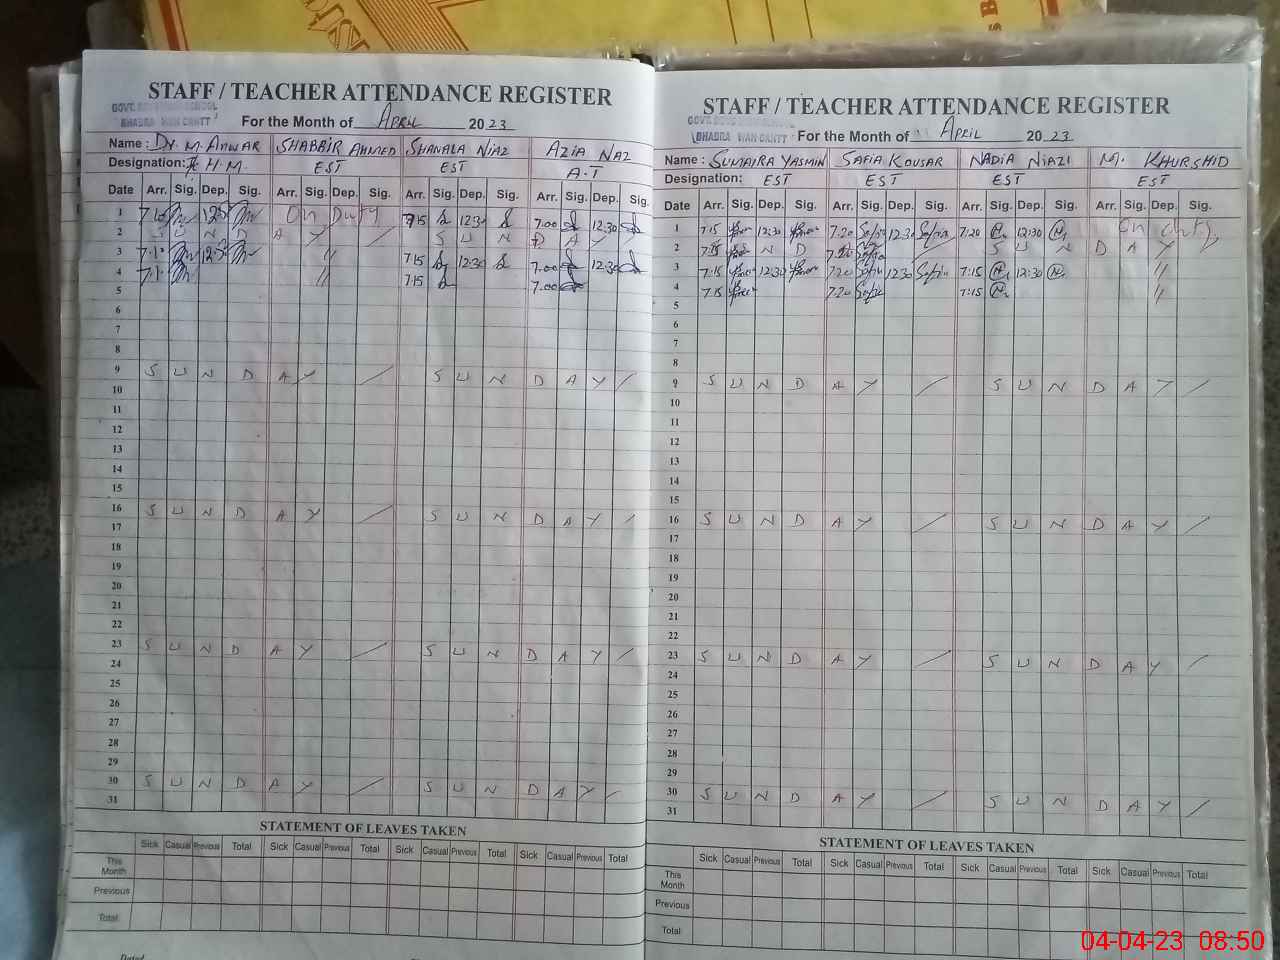 STAFF / TEACHER ATTENDANCE REGISTER
GOVT. BOYS HIGH SCHOOL
BHABRA WAH CANTT
For the Month of April 2023
Name : Dr. M. ANWAR SHABBIR AHMED SHAHALA NIAZ AZIA NAZ
Designation: H.M. EST EST A.T
Date Arr. Sig. Dep. Sig. Arr. Sig. Dep. Sig. Arr. Sig. Dep. Sig. Arr. Sig. Dep. Sig.
1 7.10 On Duty 7.15 12.30 7.00 12.30
2 S U N D A Y / S U N D A Y /
3 7.1 " 7.15 12.30 7.00 12.30
4 7.1 " 7.15 7.00
5
6
7
8
9 S U N D A Y / S U N D A Y /
10
11
12
13
14
15
16 S U N D A Y / S U N D A Y /
17
18
19
20
21
22
23 S U N D A Y / S U N D A Y /
24
25
26
27
28
29
30 S U N D A Y / S U N D A Y /
31
STATEMENT OF LEAVES TAKEN
Sick Casual Previous Total Sick Casual Previous Total Sick Casual Previous Total Sick Casual Previous Total
This Month
Previous
Total
Dated
STAFF / TEACHER ATTENDANCE REGISTER
GOVT. BOYS HIGH SCHOOL
BHABRA WAH CANTT
For the Month of April 2023
Name : SUMAIRA YASMIN SAFIA KOUSAR NADIA NIAZI M. KHURSHID
Designation: EST EST EST EST
Date Arr. Sig. Dep. Sig. Arr. Sig. Dep. Sig. Arr. Sig. Dep. Sig. Arr. Sig. Dep. Sig.
1 7.15 12.30 7.20 Safia 12.30 Safia 7.20 12:30 On duty
2 7.15 S U N D A Y / S U N D A Y /
3 7.15 12.30 7.20 Safia 12.30 Safia 7:15 12:30 "
4 7.15 7.20 Safia 7:15 "
5
6
7
8
9 S U N D A Y / S U N D A Y /
10
11
12
13
14
15
16 S U N D A Y / S U N D A Y /
17
18
19
20
21
22
23 S U N D A Y / S U N D A Y /
24
25
26
27
28
29
30 S U N D A Y / S U N D A Y /
31
STATEMENT OF LEAVES TAKEN
Sick Casual Previous Total Sick Casual Previous Total Sick Casual Previous Total Sick Casual Previous Total
This Month
Previous
Total
04-04-23 08:50